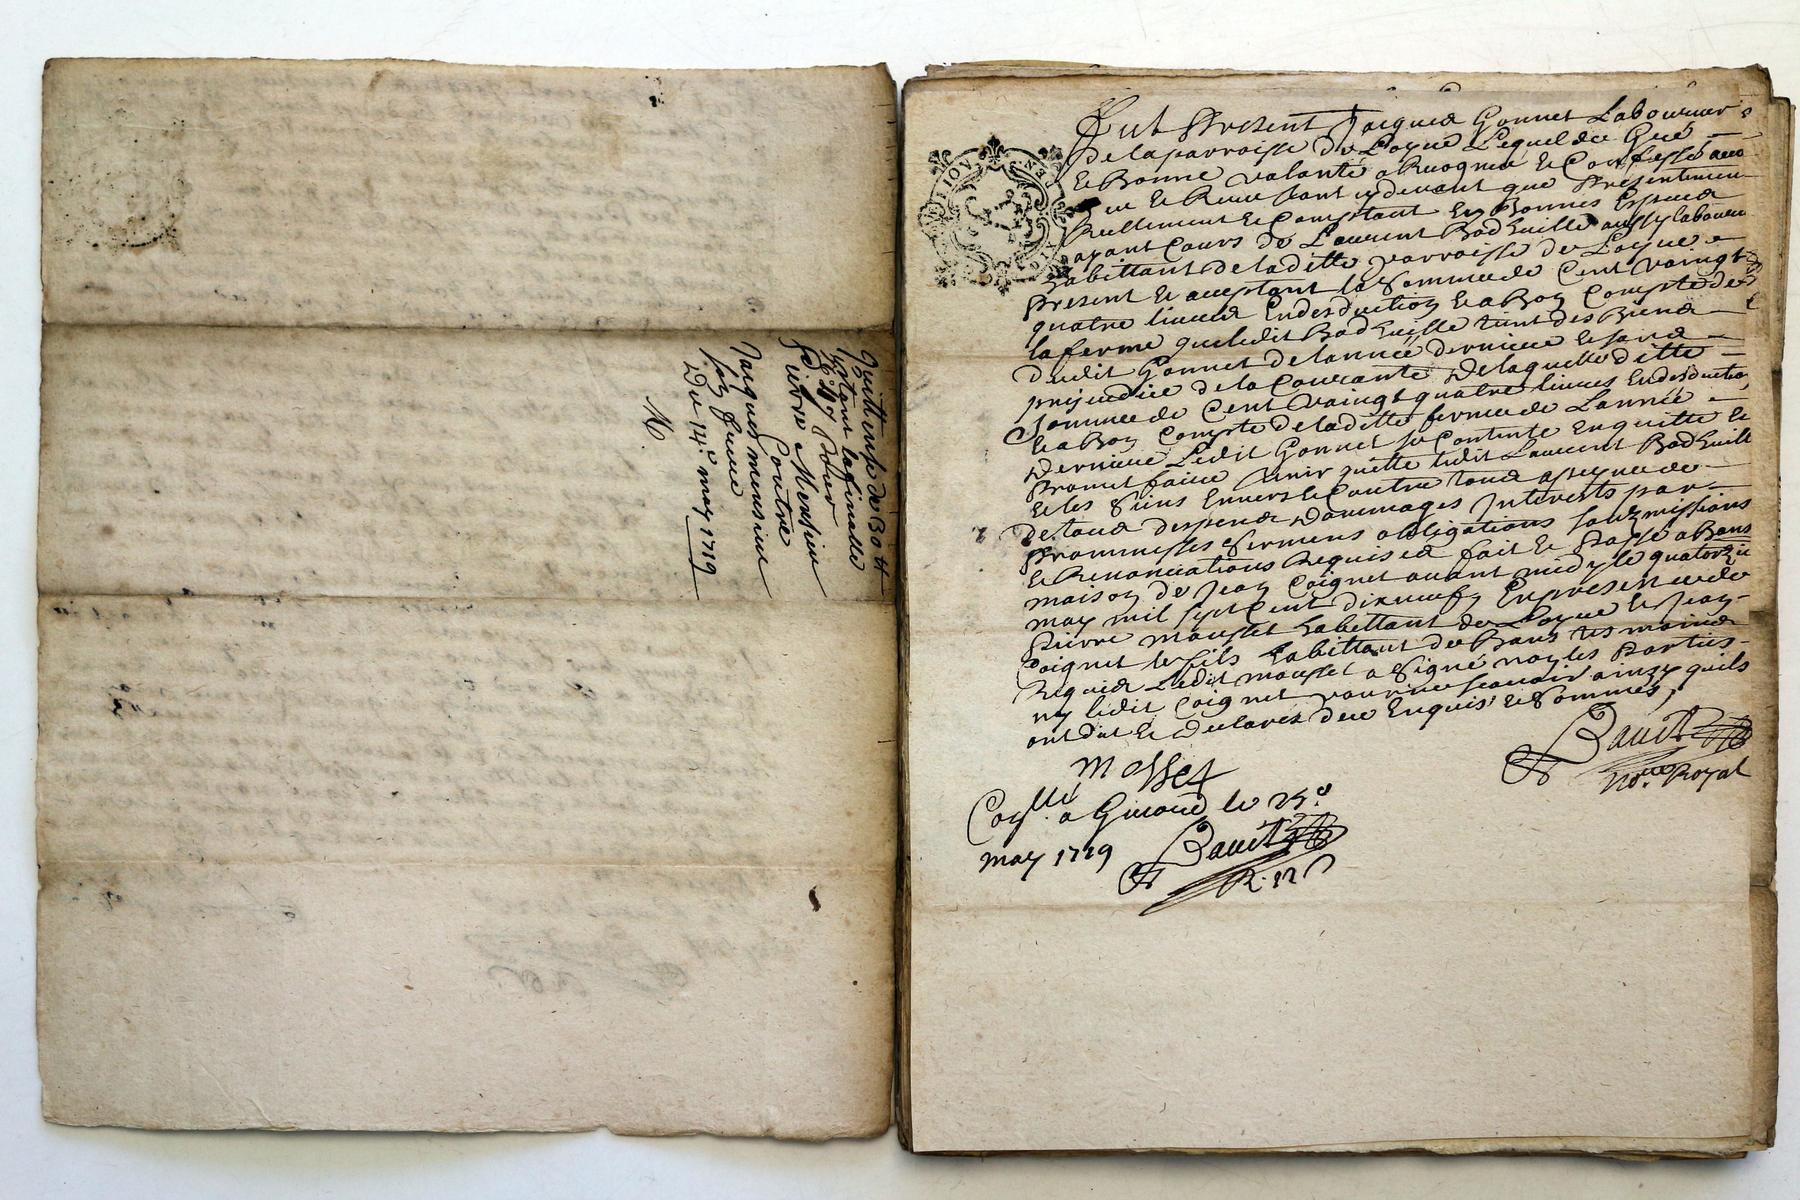 Quittance de 30 tt
portant la finalle
de 48 tt pour
Pierre Mersier
Contre
Jacques mersier
son frere
Du 14e may 1719
M.
Fut Present Jacques Gonnet Laboureur
de la parroisse de Loyue Lequel de Gré
et Bonne valanté a Recognu et Confessé avoir
eu et Receu tant cy devant que Presentemen
Reellement et Comptant En Bonnes Especes
ayant Cours de Laurent Badhuille aussy laboureur
habittant de laditte parroisse de Loyue
Present et acceptant la Somme de Cent Vaingt
quatre livres En desduction et a Bon Compte de
la ferme que ledit Badhuille tient des Biens
dudit Gonnet de lannée derniere et sans
prejudice de la Courante De laquelle ditte
Somme de Cent Vaingt quatre livres En desduction
et a Bon Compte de la ditte ferme de Lannée
Derniere Ledit Gonnet se Contente En quitte et
Promet faire tenir quitte ledit Laurent Badhuille
et les Siens Envers et Contre tous a peyne de
de tous despens Dommages Interests par
Prommesses Sermens obligations soubzmissions
et Renonciations Requises fait et Passé a Bans
maison de Jean Coignet avant midy le quatorzie
may mil sept Cent dix neuf En presence de
Pierre mousset habittant de Loyue et Jean
Coignet le fils habittant de Bans tesmoins
Requis Ledit mousset a Signé non les Parties
ny ledit Coignet pour ne scavoir ainsy quils
ont dit et declarés de ce Enquis et Sommes
Mosset
No.re Royal
Conllé a Givord le 25e
may 1719
R. 12 s